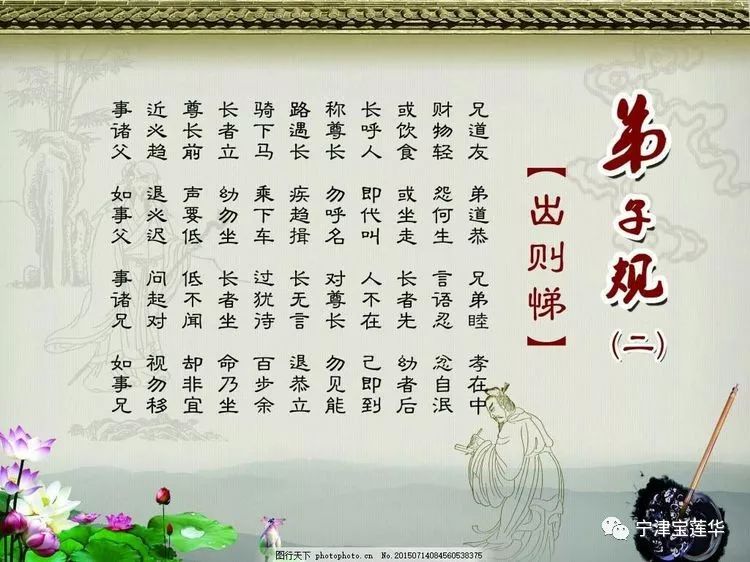 弟子规
（二）
【出则悌】
兄道友 弟道恭 兄弟睦 孝在中
财物轻 怨何生 言语忍 忿自泯
或饮食 或坐走 长者先 幼者后
长呼人 即代叫 人不在 己即到
称尊长 勿呼名 对尊长 勿见能
路遇长 疾趋揖 长无言 退恭立
骑下马 乘下车 过犹待 百步余
长者立 幼勿坐 长者坐 命乃坐
尊长前 声要低 低不闻 却非宜
近必趋 退必迟 问起对 视勿移
事诸父 如事父 事诸兄 如事兄
宁津宝莲华
图行天下 photophoto.cn No.20150714084560538375